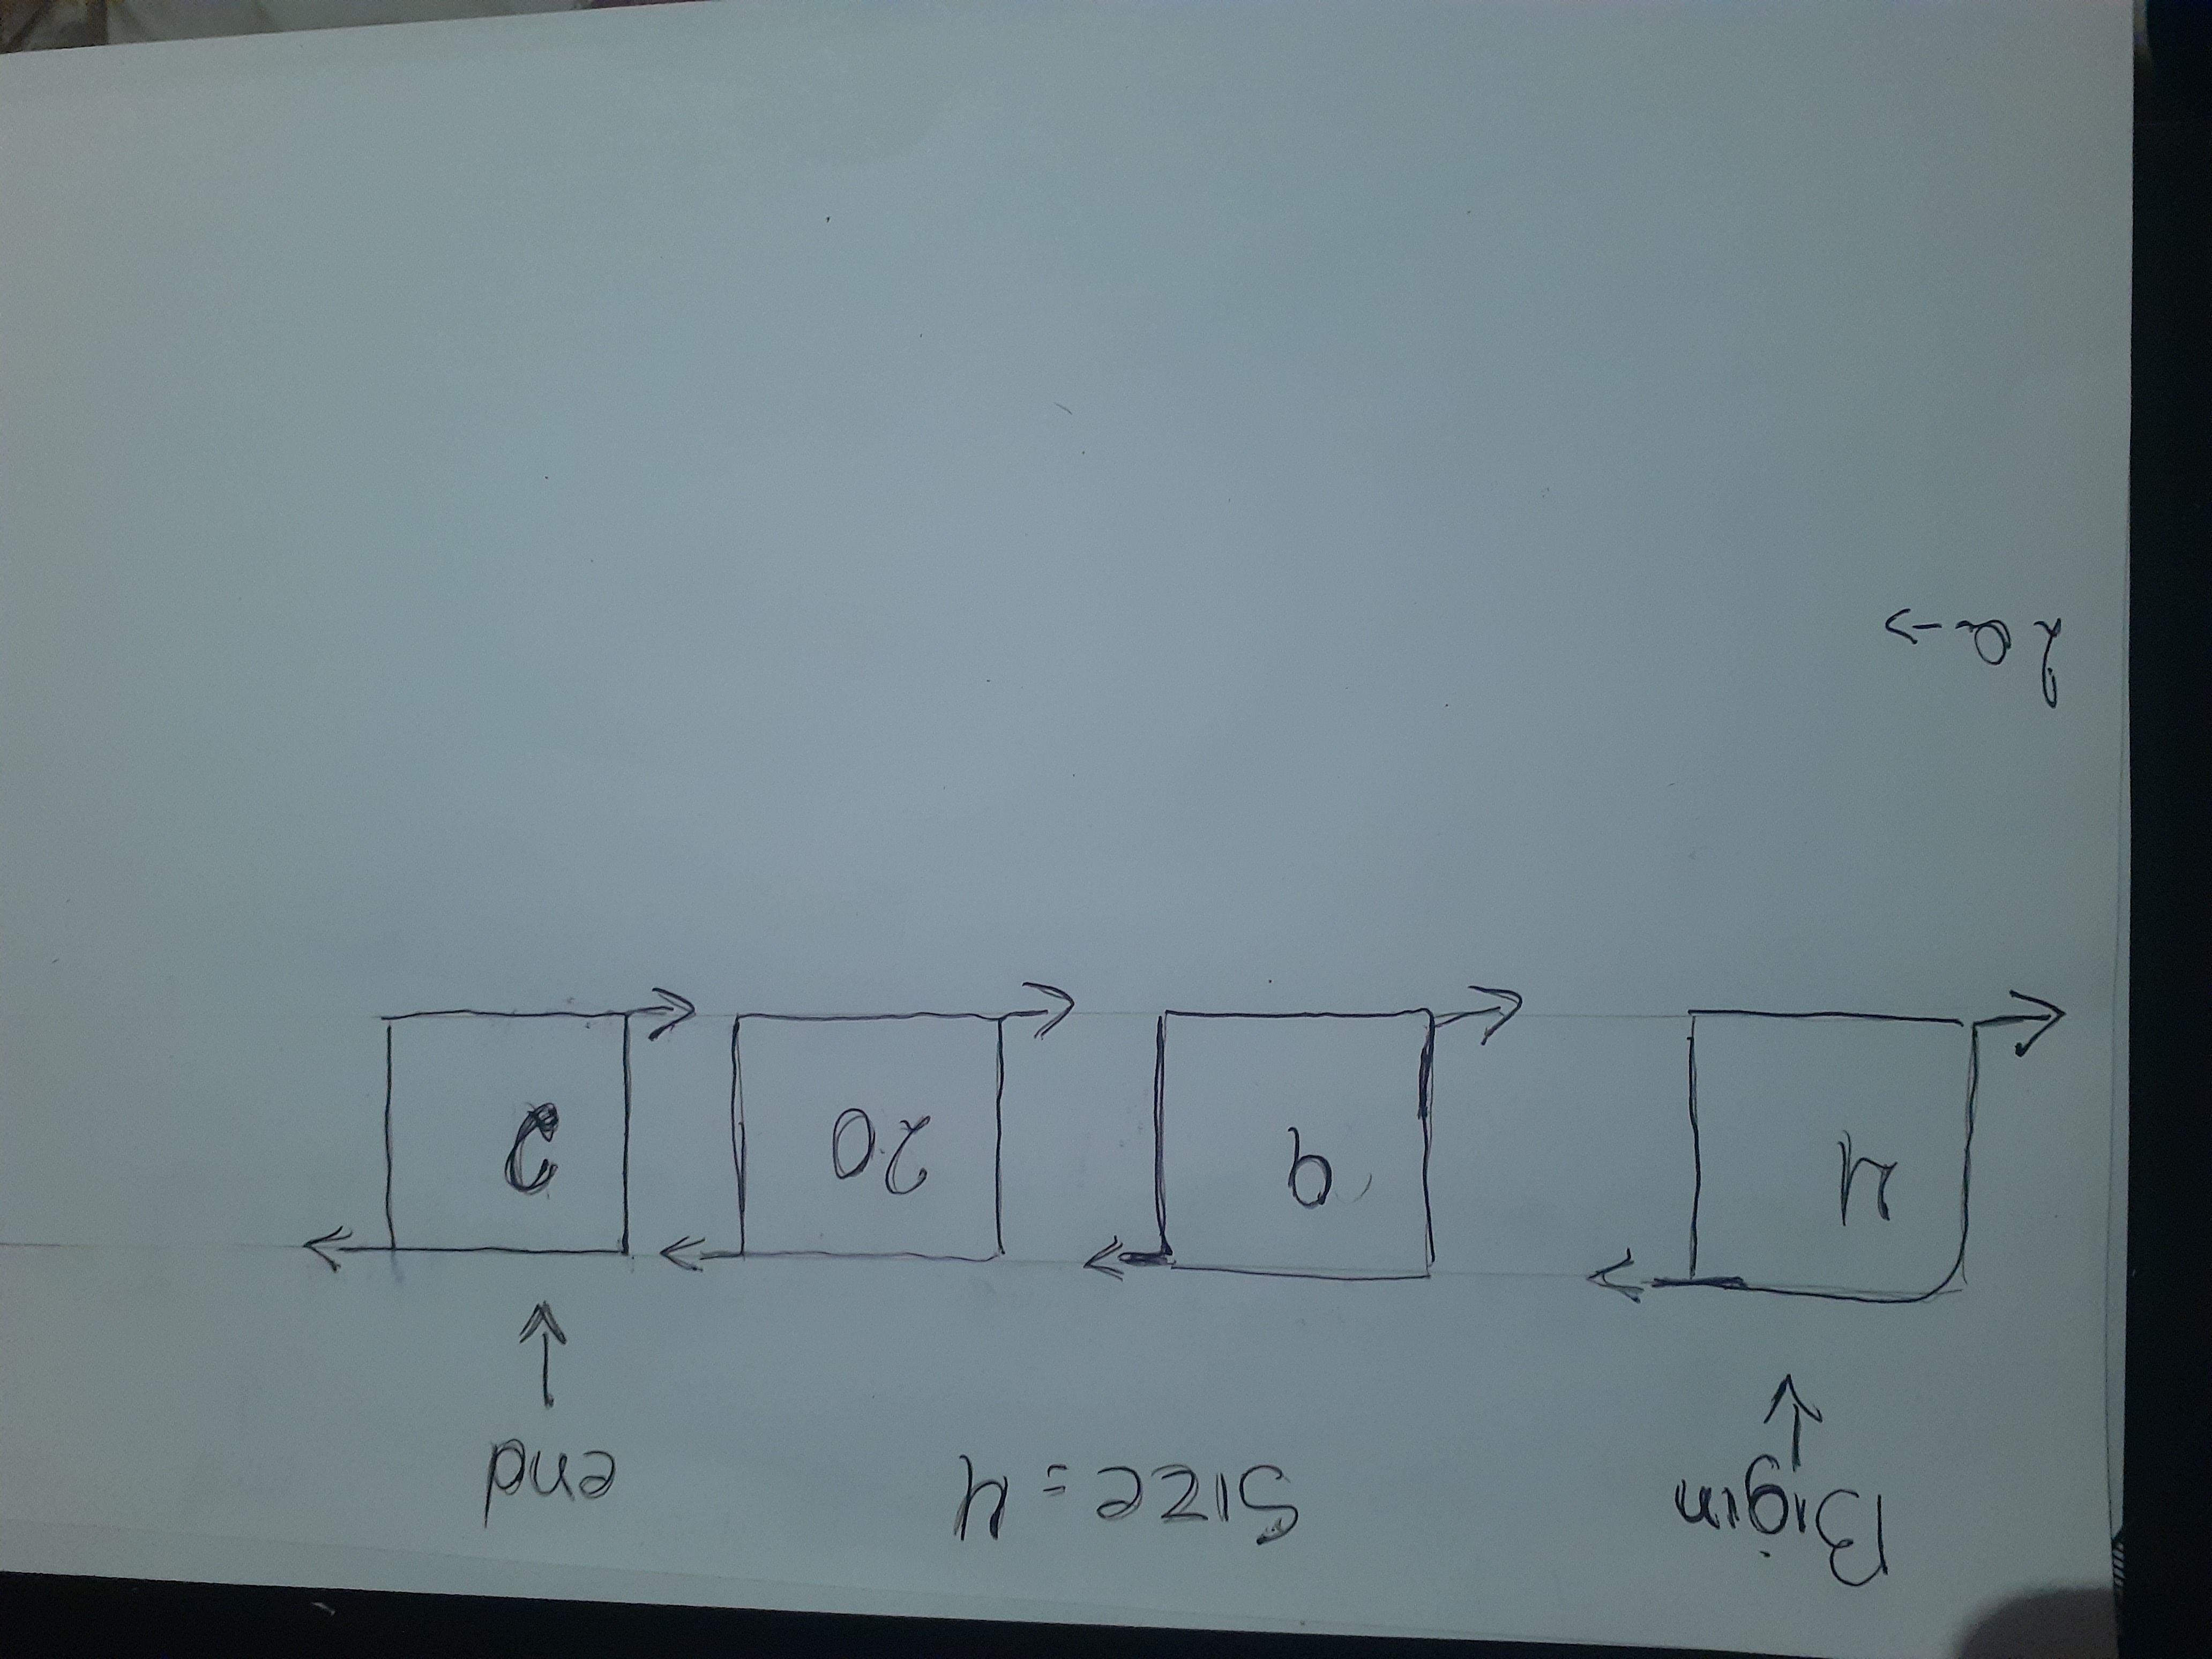 Bigin Size = 4 end
↓ ↓
4 9 20
2a→